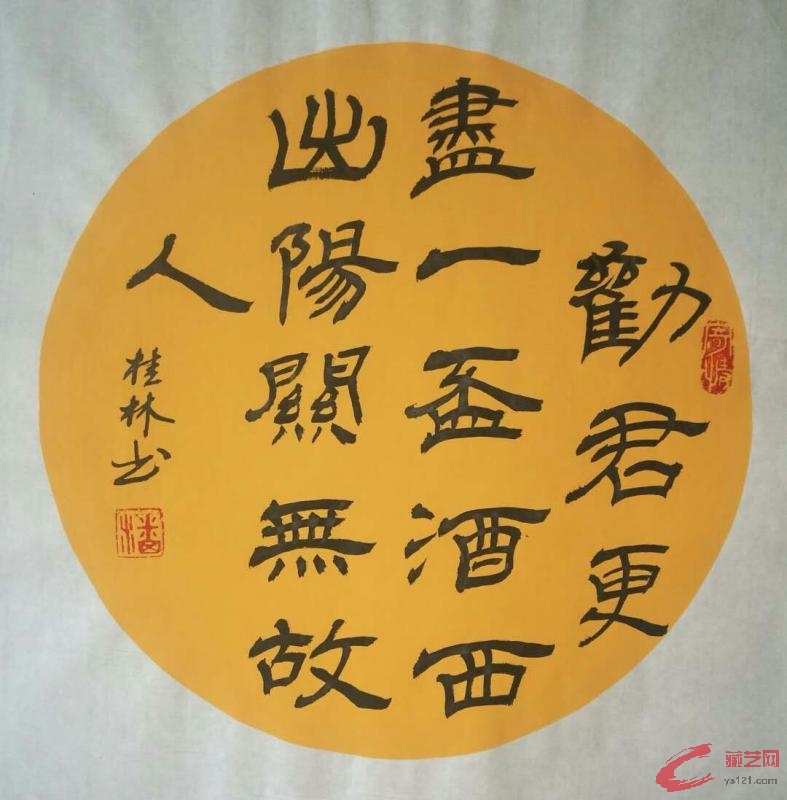 勸君更
盡一盃酒西
出陽關無故
人
桂林书
藏艺网
ys121.com